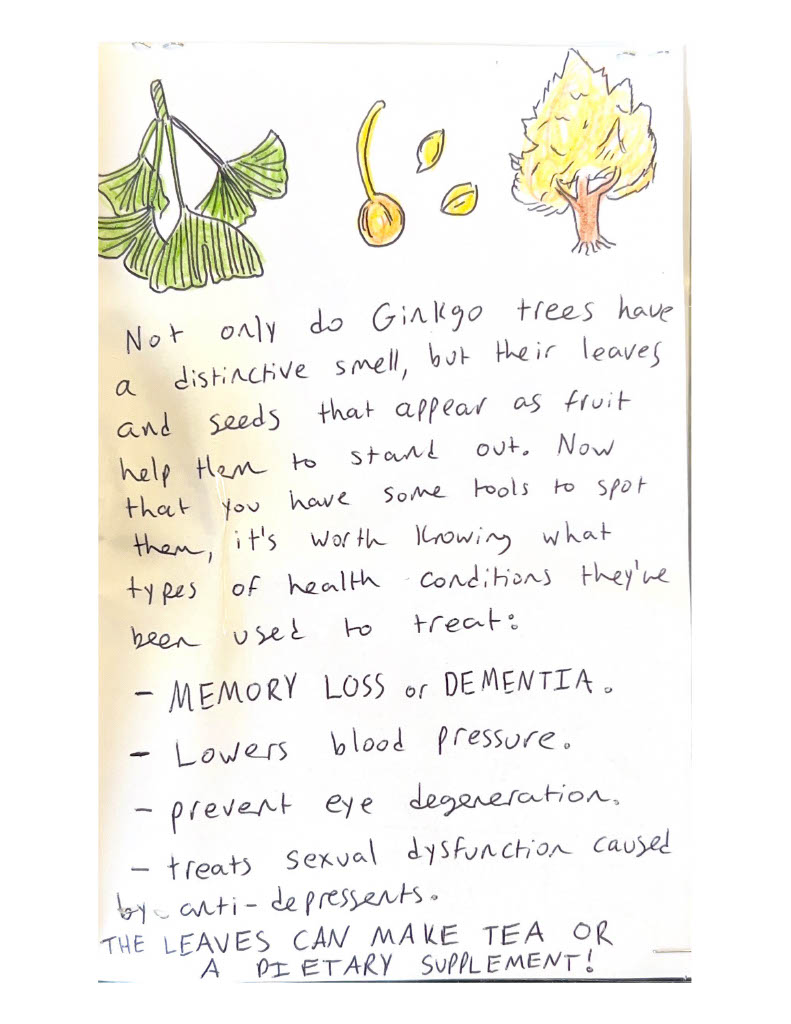 Not only do Ginkgo trees have
a distinctive smell, but their leaves
and seeds that appear as fruit
help them to stand out. Now
that you have some tools to spot
them, it's worth knowing what
types of health conditions they've
been used to treat:
- MEMORY LOSS or DEMENTIA.
- Lowers blood pressure.
- prevent eye degeneration.
- treats sexual dysfunction caused
by anti-depressents.
THE LEAVES CAN MAKE TEA OR
A DIETARY SUPPLEMENT!